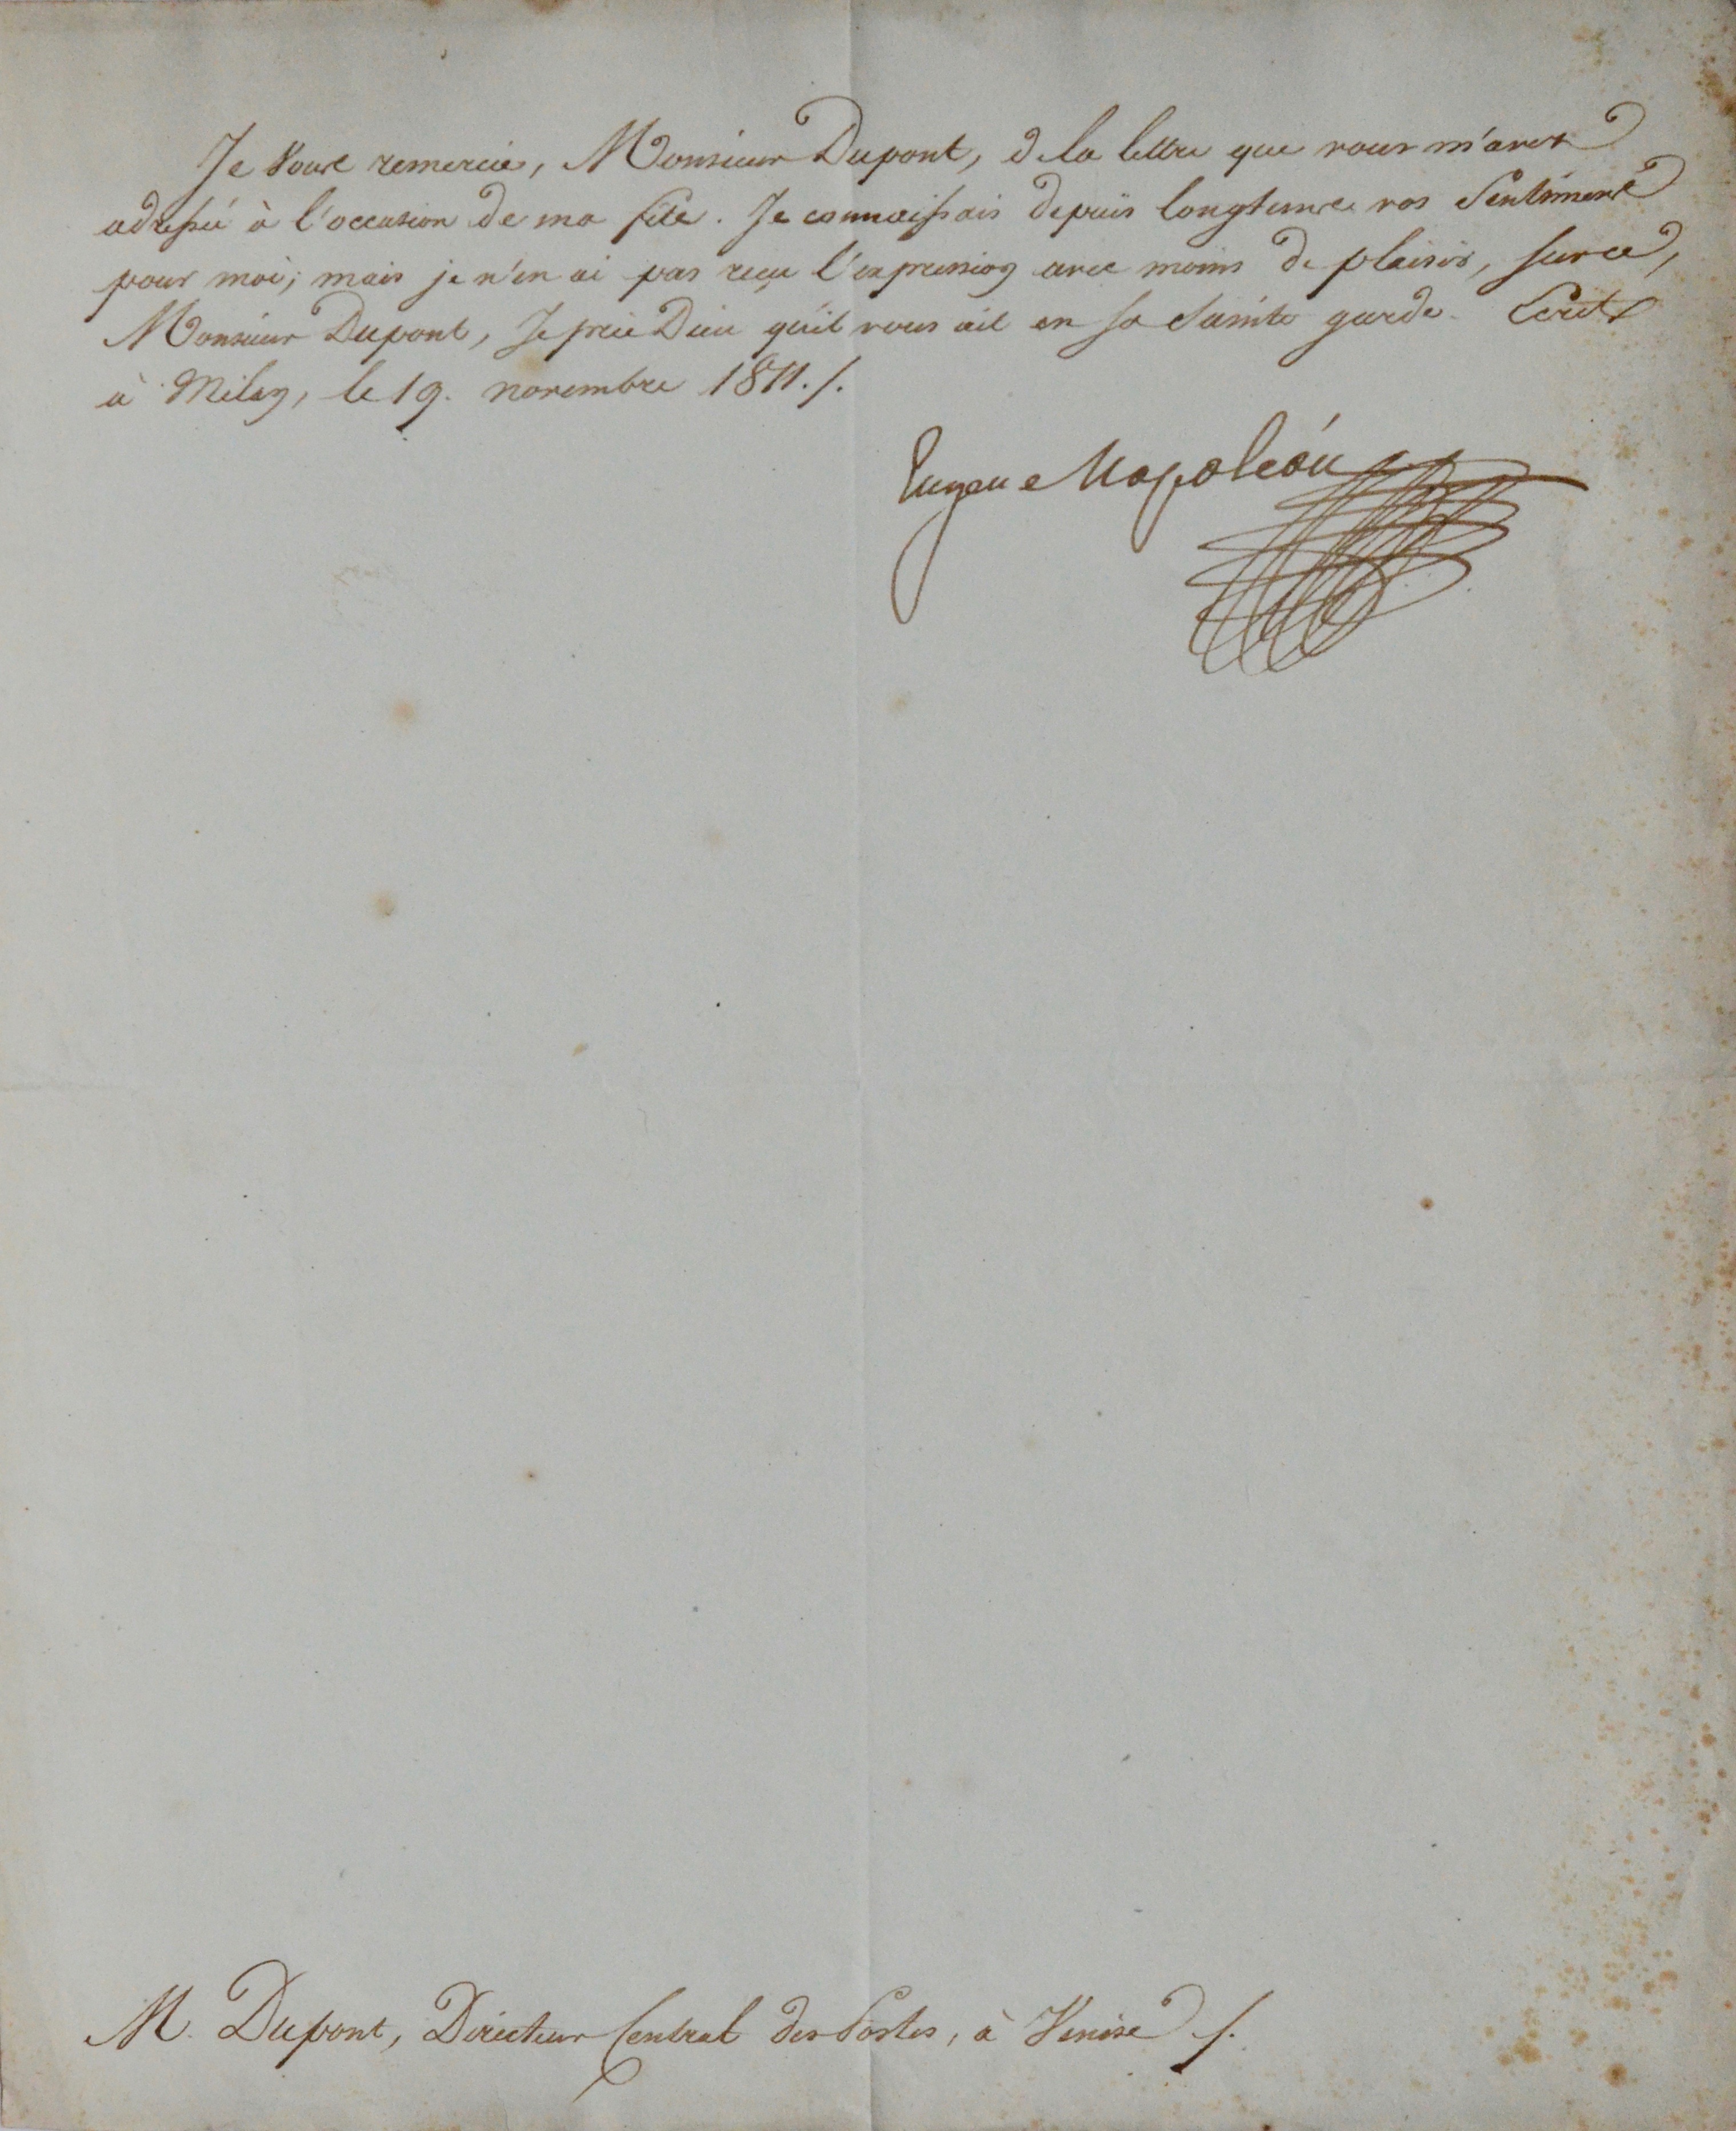 Je vous remercie, Monsieur Dupont, de la lettre que vous m'avez
adressée à l'occasion de ma fête. Je connaissais depuis longtems vos Sentiments
pour moi; mais je n'en ai pas reçu l'expression avec moins de plaisir, sur ce,
Monsieur Dupont, Je prie Dieu qu'il vous ait en sa Sainte garde. Ecrit
à Milan, le 19. novembre 1811./.
Eugene Napoléon
M. Dupont, Directeur Central des Postes, à Venise /.